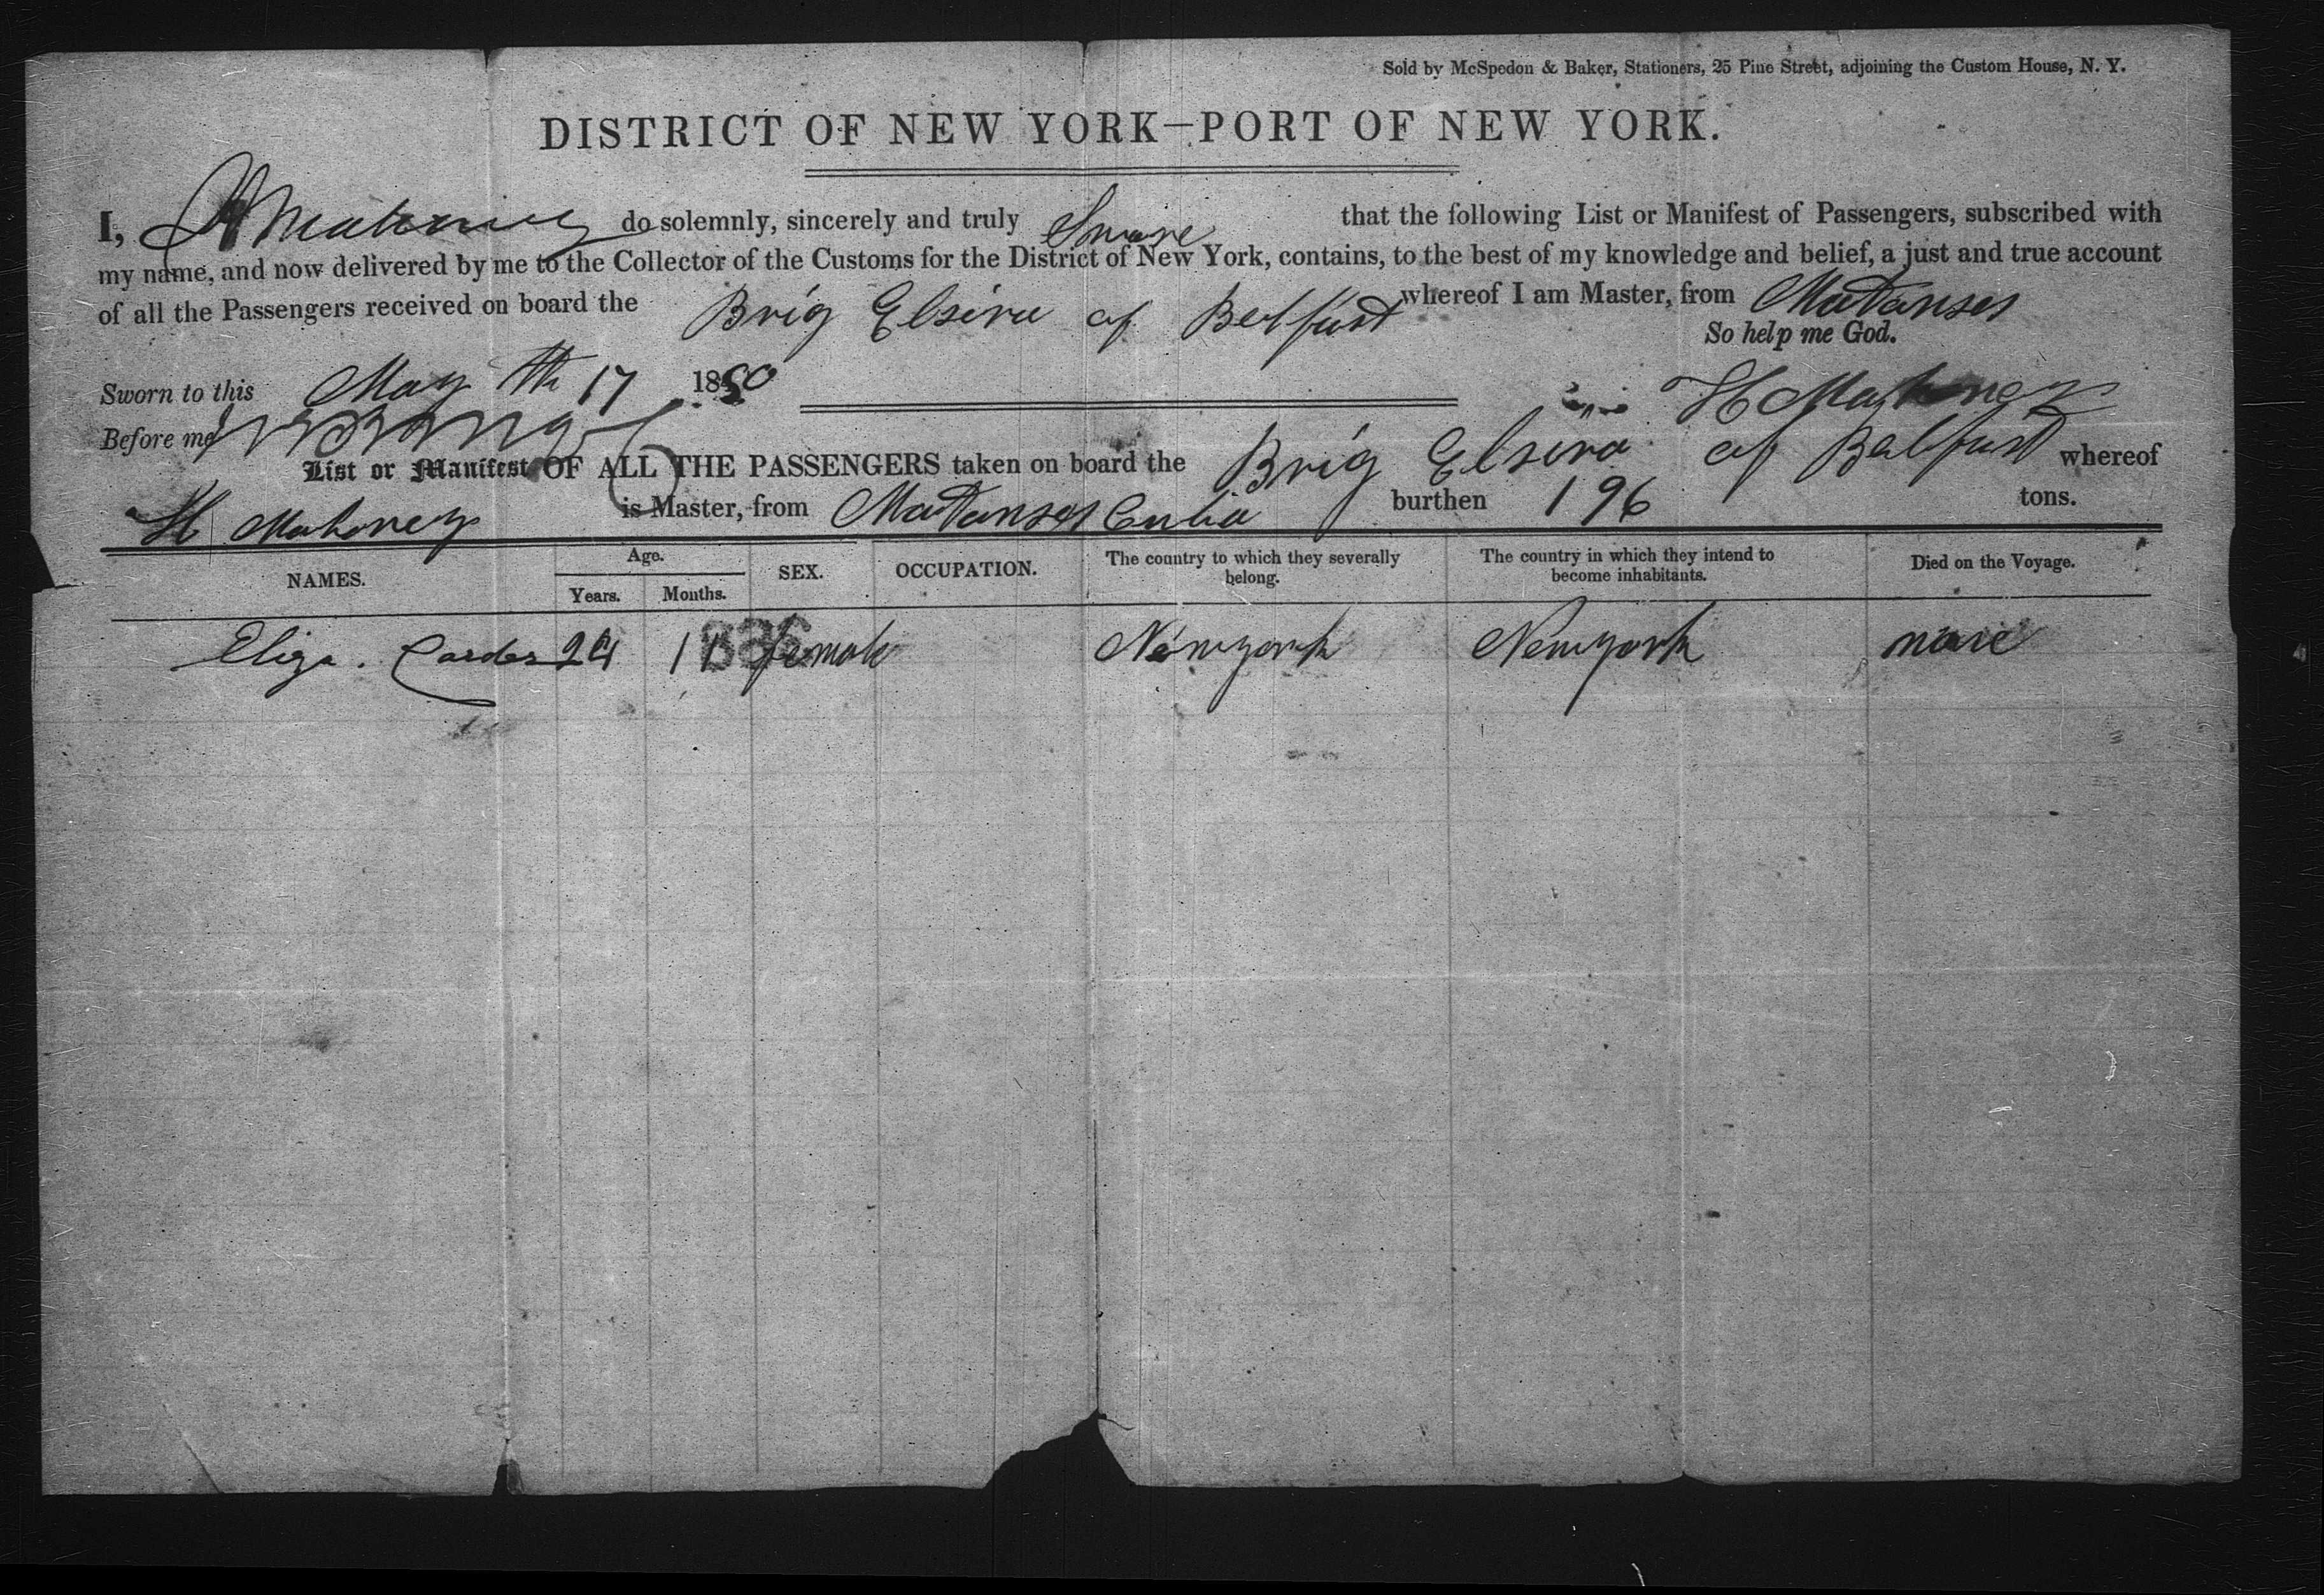 Sold by McSpedon & Baker, Stationers, 25 Pine Street, adjoining the Custom House, N. Y.
DISTRICT OF NEW YORK—PORT OF NEW YORK.
I, H Mahoney do solemnly, sincerely and truly Sware that the following List or Manifest of Passengers, subscribed with
my name, and now delivered by me to the Collector of the Customs for the District of New York, contains, to the best of my knowledge and belief, a just and true account
of all the Passengers received on board the Brig Elsira of Belfast whereof I am Master, from Matanses
So help me God.
Sworn to this May th 17 1850 H Mahoney
Before me
List or Manifest OF ALL THE PASSENGERS taken on board the Brig Elsira of Belfast whereof
H Mahoney is Master, from Matanses Cuba burthen 196 tons.
NAMES. Age. Years. Months. SEX. OCCUPATION. The country to which they severally belong. The country in which they intend to become inhabitants. Died on the Voyage.
Eliza. Carder 24 11 female Newyork Newyork none